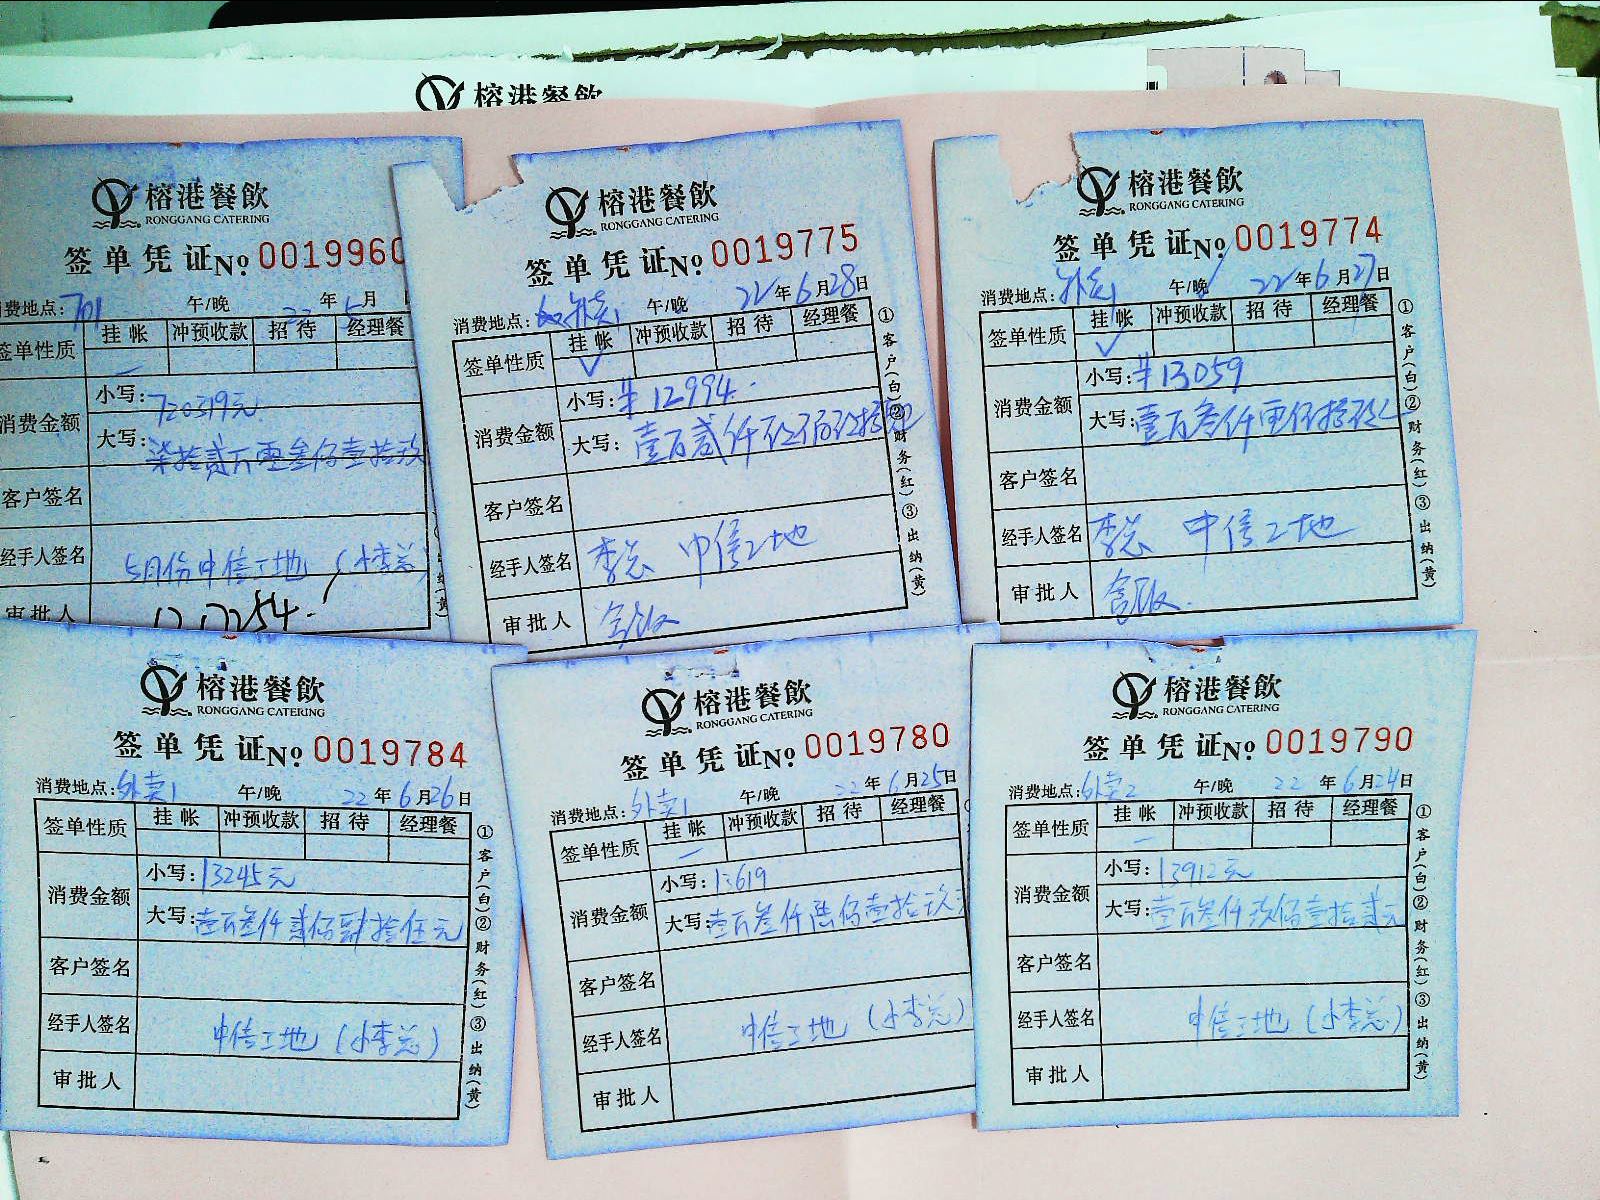 榕港餐飲
榕港餐飲
RONGGANG CATERING
签单凭证No 0019960
消费地点: 701 午/晚 22年5月
签单性质 挂帐 冲预收款 招待 经理餐
消费金额 小写: 720319元
大写: 柒拾贰万零叁佰壹拾玖
客户签名
经手人签名 5月份中信工地(小李总)
审批人
榕港餐飲
RONGGANG CATERING
签单凭证No 0019775
消费地点: 外卖1 午/晚 22年6月28日
签单性质 挂帐 冲预收款 招待 经理餐
✓
消费金额 小写: # 12994.
大写: 壹万贰仟玖佰玖拾肆
客户签名
经手人签名 李总 中信工地
审批人
①客户(白)②财务(红)③出纳(黄)
榕港餐飲
RONGGANG CATERING
签单凭证No 0019774
消费地点: 外卖1 午/晚 22年6月27日
签单性质 挂帐 冲预收款 招待 经理餐
✓
消费金额 小写: # 13059
大写: 壹万叁仟零佰拾玖
客户签名
经手人签名 李总 中信工地
审批人
①客户(白)②财务(红)③出纳(黄)
榕港餐飲
RONGGANG CATERING
签单凭证No 0019784
消费地点: 外卖1 午/晚 22年6月26日
签单性质 挂帐 冲预收款 招待 经理餐
消费金额 小写: 13245元
大写: 壹万叁仟贰佰肆拾伍元
客户签名
经手人签名 中信工地(小李总)
审批人
①客户(白)②财务(红)③出纳(黄)
榕港餐飲
RONGGANG CATERING
签单凭证No 0019780
消费地点: 外卖1 午/晚 22年6月25日
签单性质 挂帐 冲预收款 招待 经理餐
消费金额 小写: 13619
大写: 壹万叁仟陆佰壹拾玖元
客户签名
经手人签名 中信工地(小李总)
审批人
榕港餐飲
RONGGANG CATERING
签单凭证No 0019790
消费地点: 外卖2 午/晚 22年6月24日
签单性质 挂帐 冲预收款 招待 经理餐
消费金额 小写: 13912元
大写: 壹万叁仟玖佰壹拾贰元
客户签名
经手人签名 中信工地(小李总)
审批人
①客户(白)②财务(红)③出纳(黄)